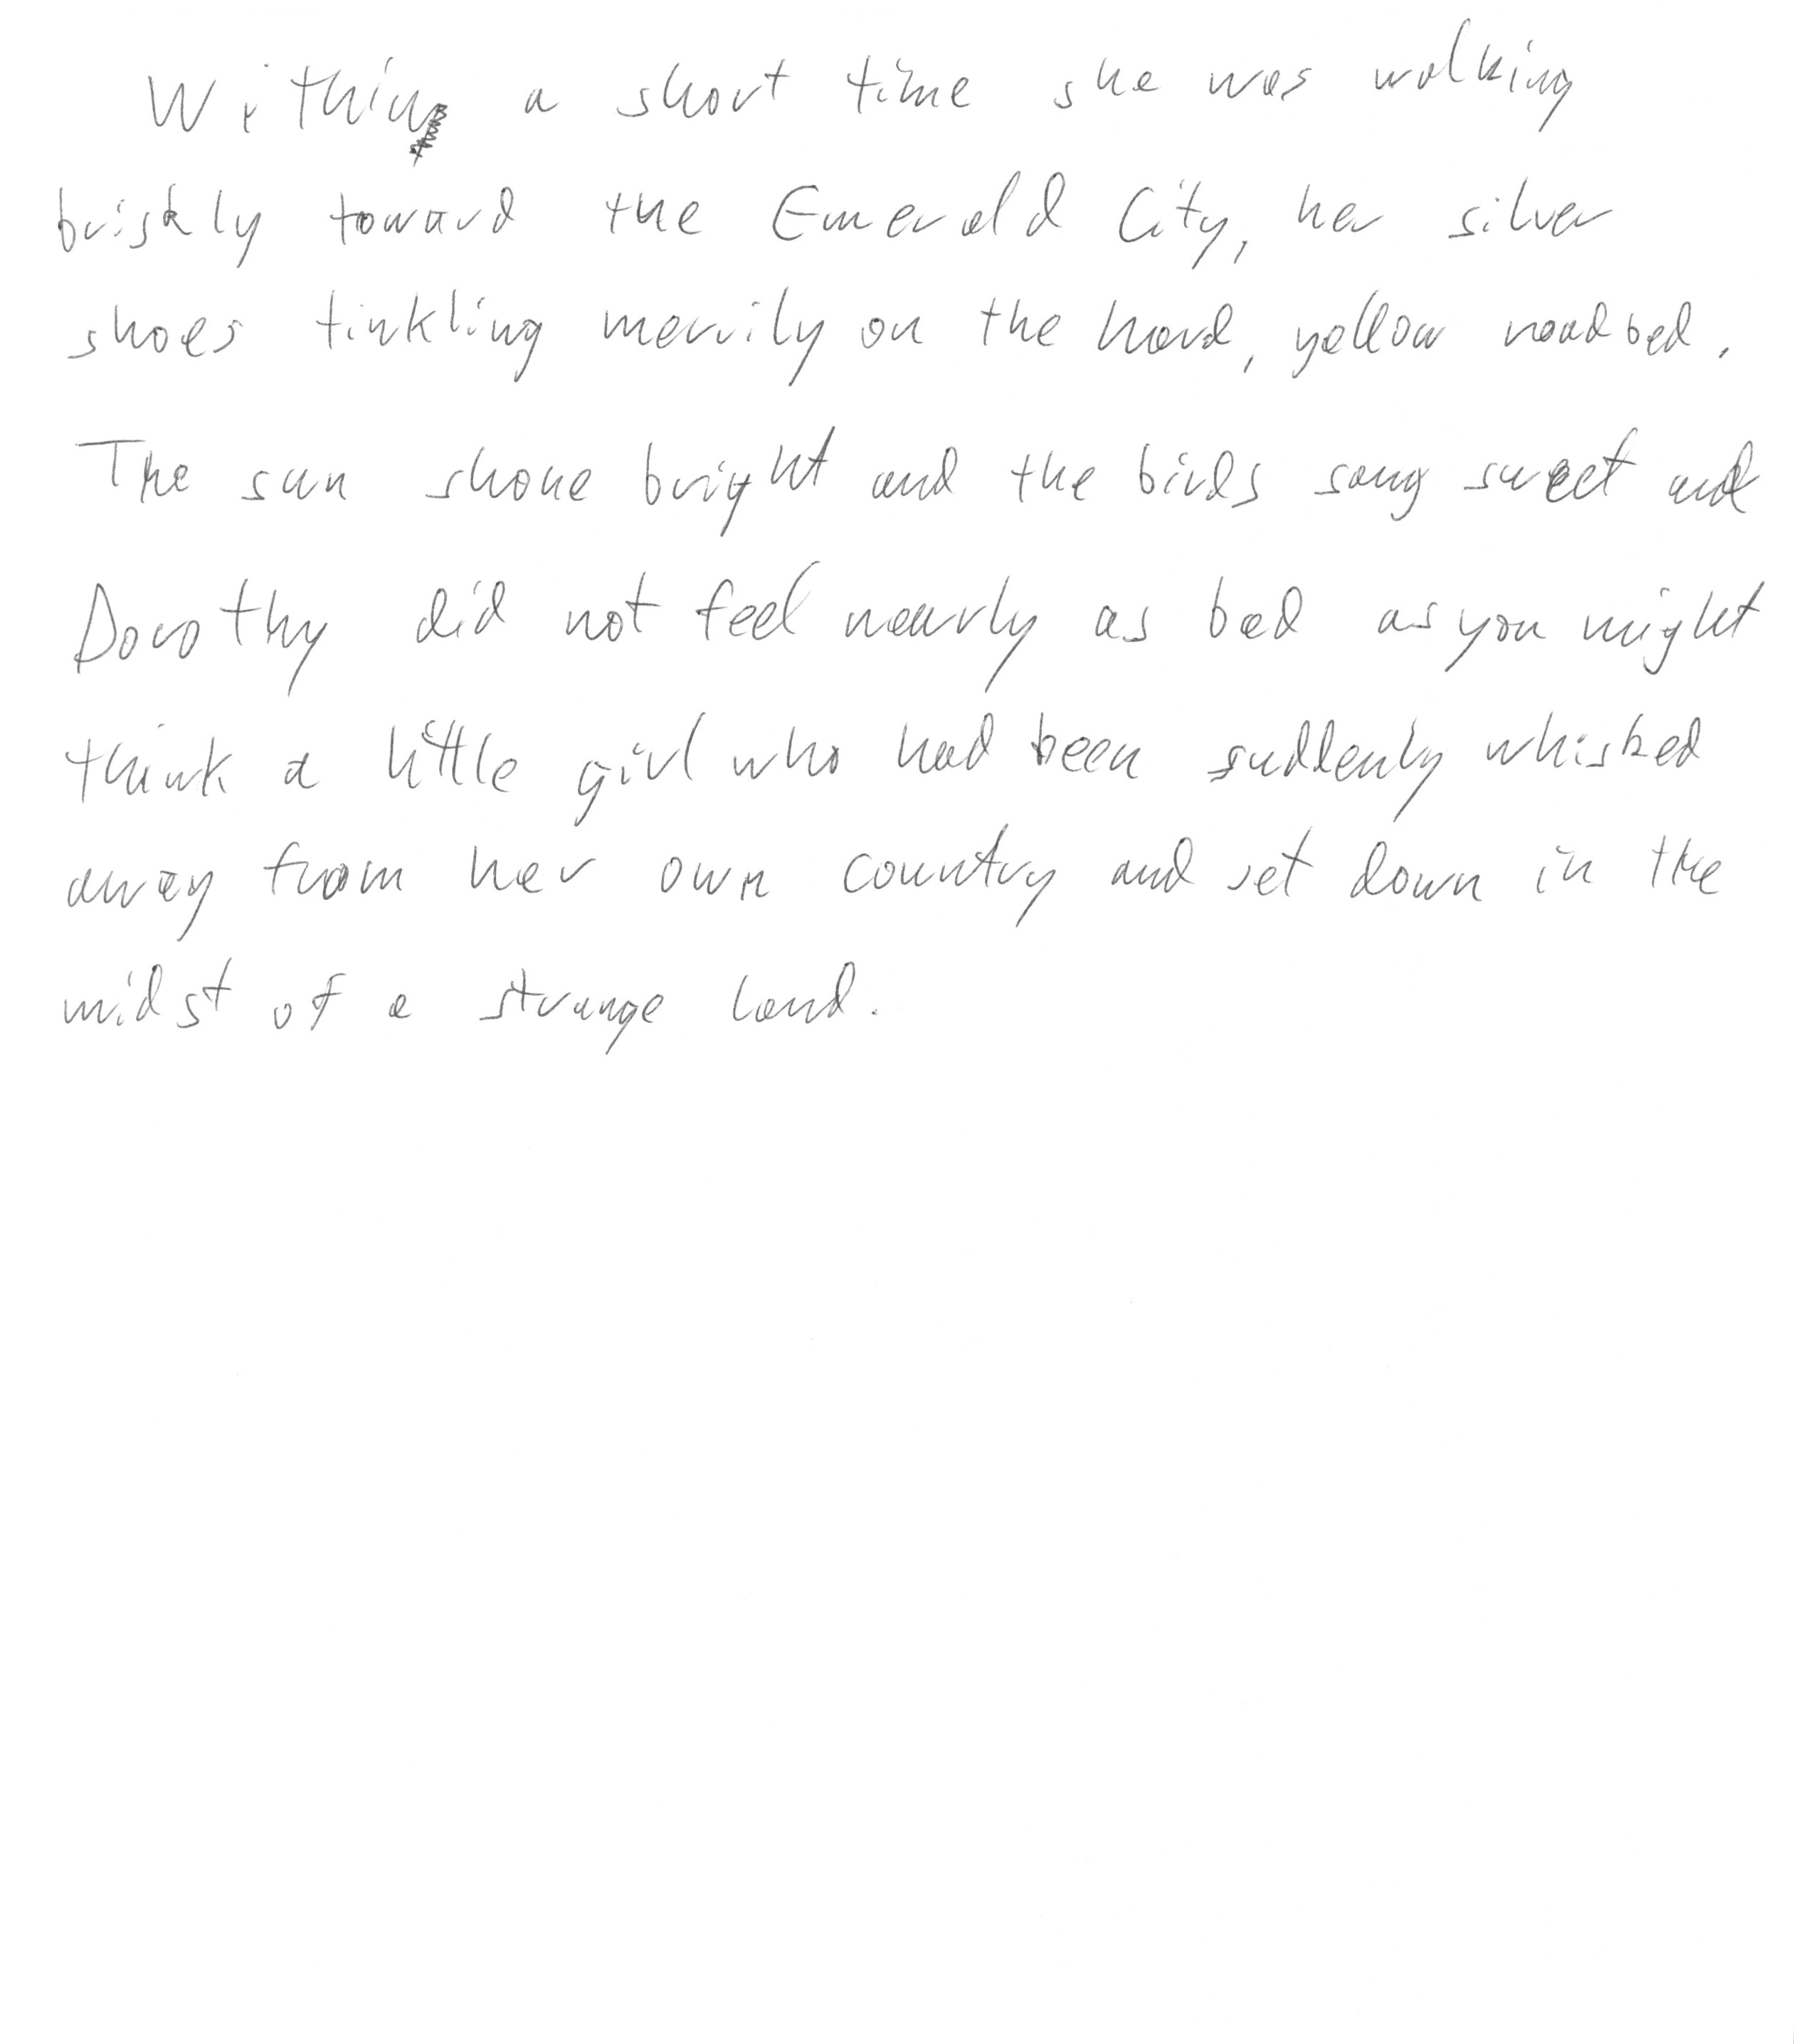 Within a short time she was walking
briskly toward the Emerald City, her silver
shoes tinkling merrily on the hard, yellow roadbed.
The sun shone bright and the birds sang sweet and
Dorothy did not feel nearly as bad as you might
think a little girl who had been suddenly whisked
away from her own country and set down in the
midst of a strange land.